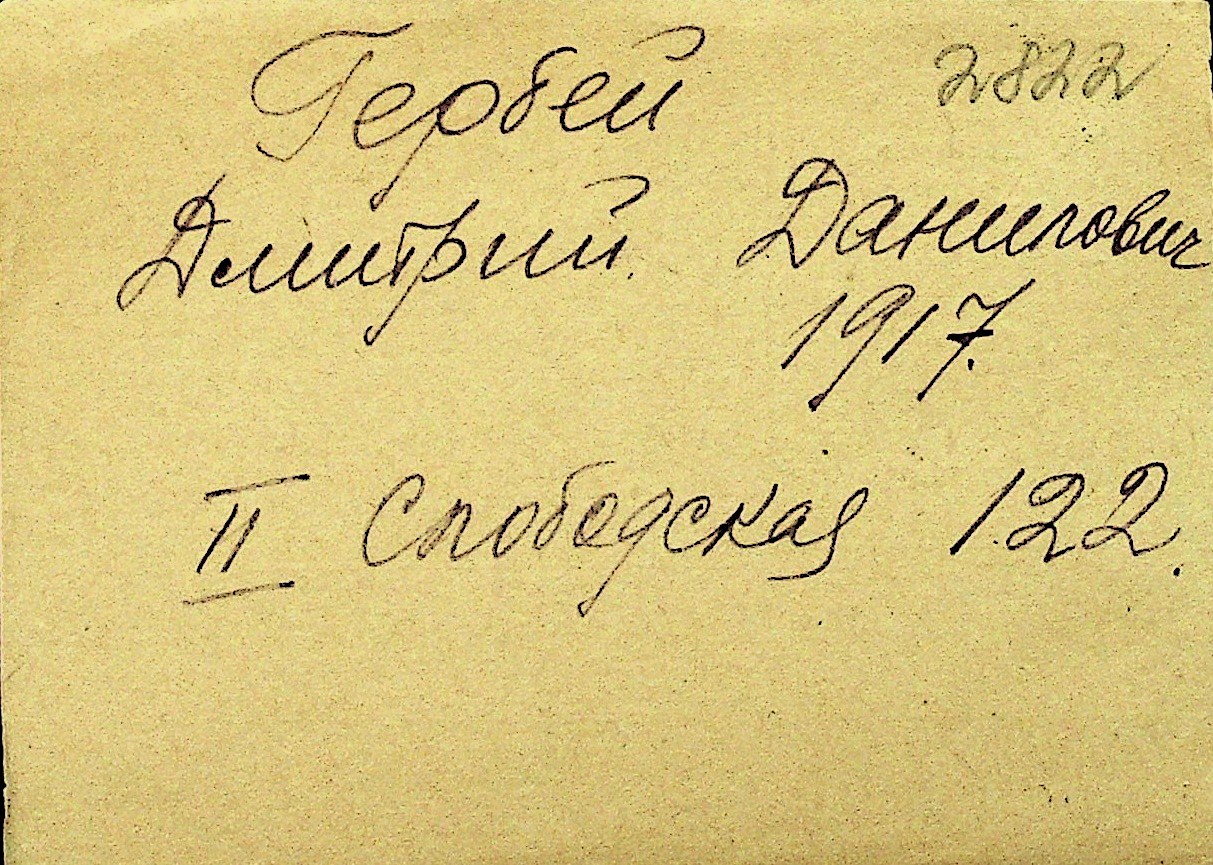 2822
Гербей
Дмитрий Данилович
1917.
II Слободская 122.